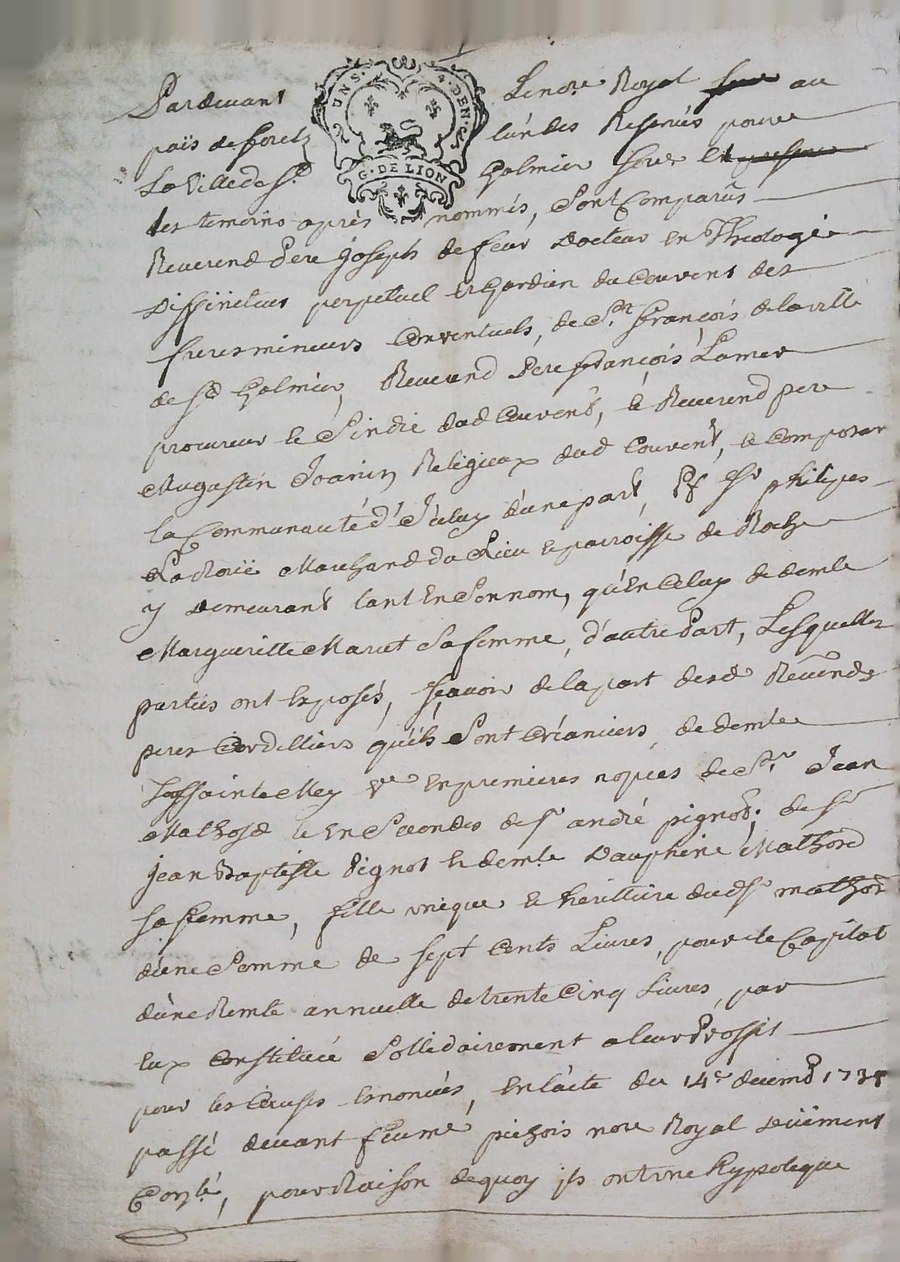 UN S. 4. DEN.
G. DE LION
Pardevant Le no.re Royal au
païs de foretz l'un des Reservés pour
La Ville de S.t Galmier
des temoins après nommés, sont Comparûs
Reverend Pere Joseph de feur Docteur en Theologie
Diffiniteur perpetuel et Gardien du Couvent des
freres mineurs Conventuels, de S.t François de la ville
de S.t Galmier, Reverend Pere François Lamer
procureur et Sindic dud Couvent, et Reverend pere
Augustin Religieux dud Couvent, et Composant
la Communauté d'Iceluy d'une part, Et S.r philipes
Laroüe Marchand du Lieu et parroisse de Roche
y Demeurant tant En Son nom, qu'En Celuy de demle
Margueritte Maret Sa femme, d'autre Part, Lesquelles
parties ont Exposés, sçavoir de la part desd Reverends
peres Cordelliers qu'ils Sont Créanciers, de demle
Toussainte Mey v.ve en premieres nopces de S.r Jean
Mathod et En Secondes de S.r andré pignot, de S.r
Jean Baptiste Pignot et demle Dauphine Mathod
Sa femme, fille unique et herittiere dud S.r mathod
d'une Somme de Sept Cents Livres, pour le Capital
d'une Rente annuelle de trente Cinq Livres, par
Eux Constituée Sollidairement a leur Proffit
pour les Causes Enoncées, En l'acte du 14.e decemb
passé devant feu me no.re Royal deüement
Conlé, pour Raison de quoy ils ont une hypoteque